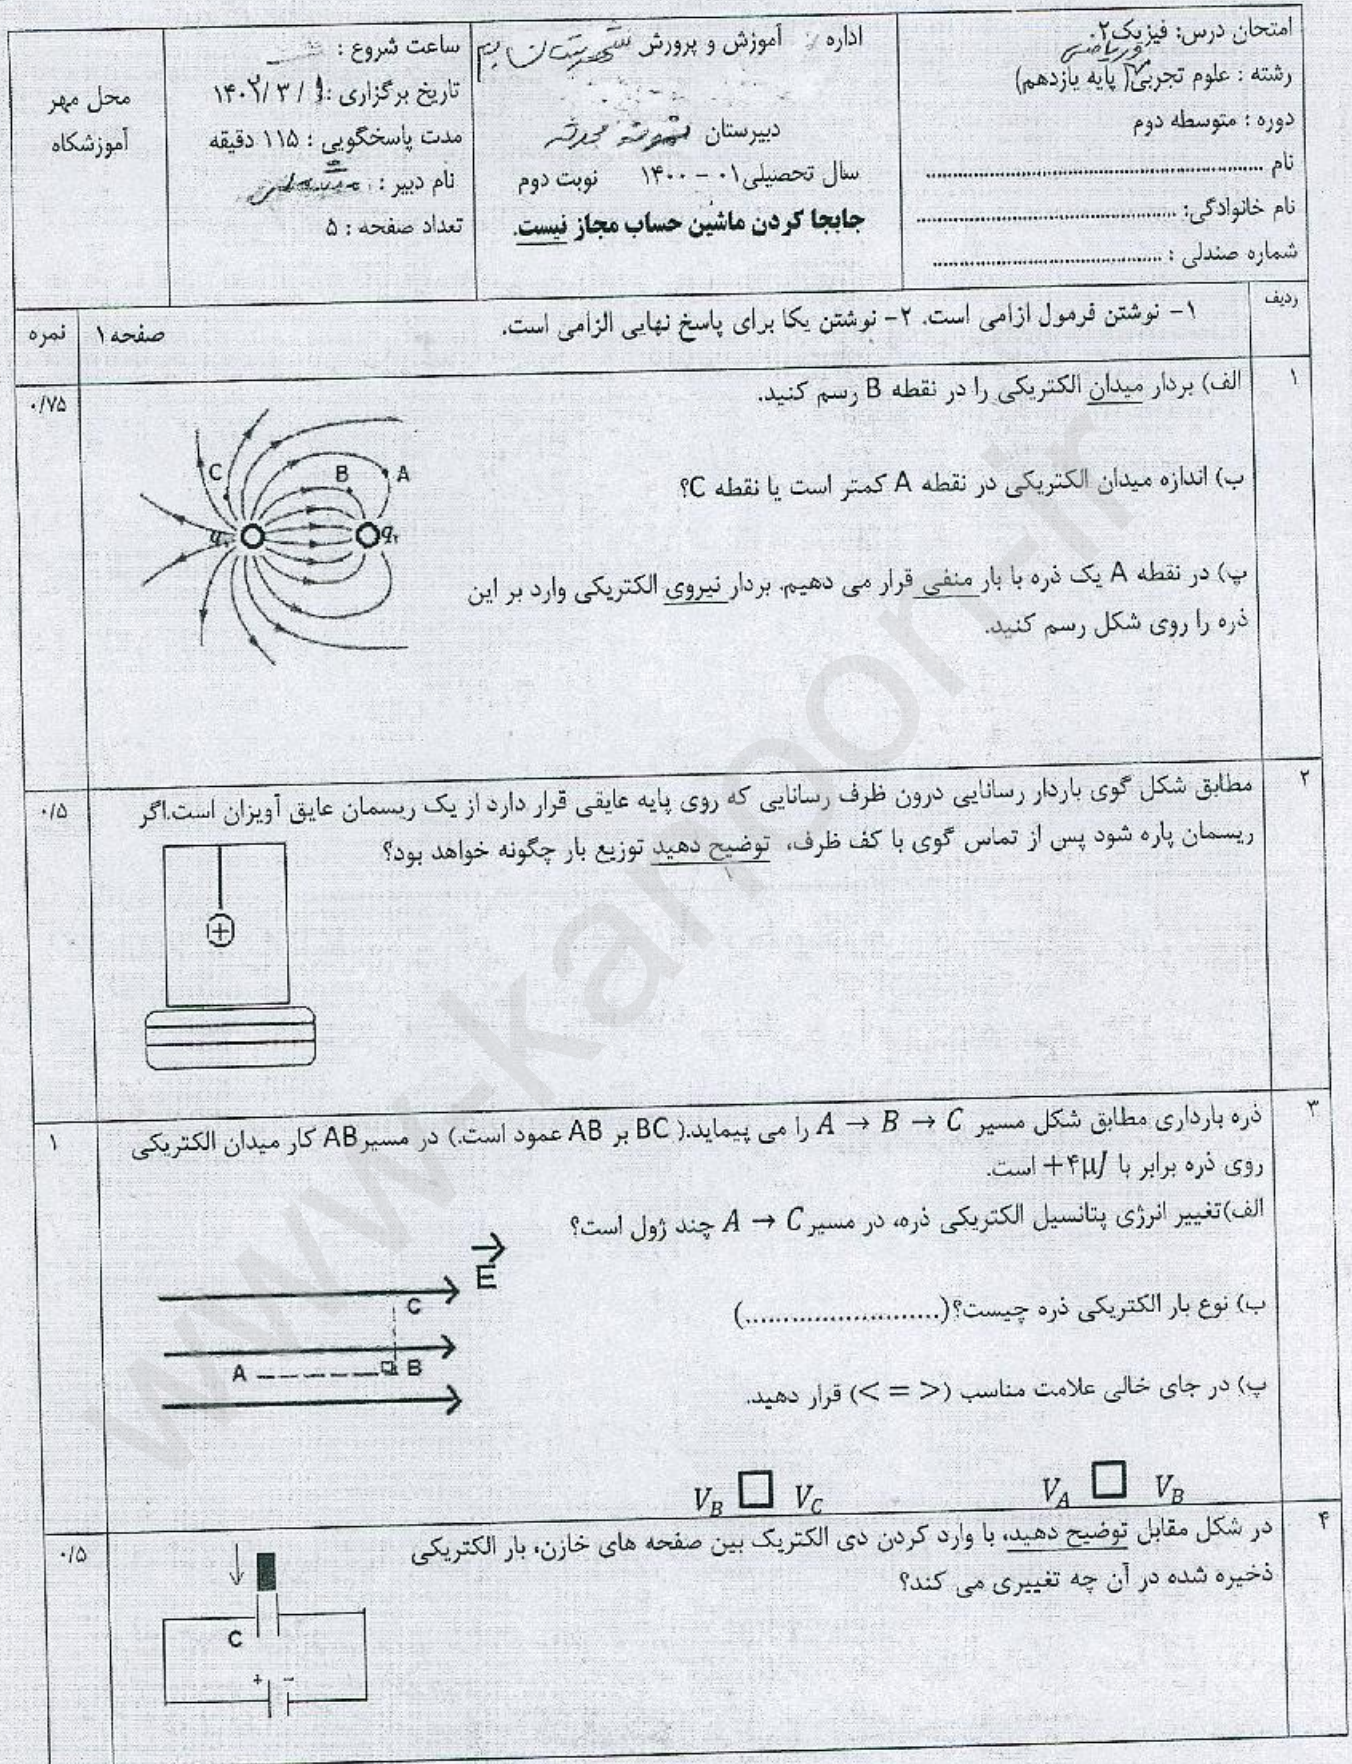 امتحان درس: فیزیک۲.
وریاضی
رشته : علوم تجربی( پایه یازدهم)
دوره : متوسطه دوم
نام ......................................................
نام خانوادگی: ..........................................
شماره صندلی : .....................................
اداره آموزش و پرورش شهرستان بم
دبیرستان
سال تحصیلی ۰۱ - ۱۴۰۰ نوبت دوم
جابجا کردن ماشین حساب مجاز نیست.
ساعت شروع :
تاریخ برگزاری : ۹ / ۳ / ۱۴۰۲
مدت پاسخگویی : ۱۱۵ دقیقه
نام دبیر :
تعداد صفحه : ۵
محل مهر
آموزشگاه
ردیف
۱- نوشتن فرمول ازامی است. ۲- نوشتن یکا برای پاسخ نهایی الزامی است.
صفحه ۱
نمره
۱
۰/۷۵
الف) بردار میدان الکتریکی را در نقطه B رسم کنید.
ب) اندازه میدان الکتریکی در نقطه A کمتر است یا نقطه C؟
پ) در نقطه A یک ذره با بار منفی قرار می دهیم. بردار نیروی الکتریکی وارد بر این
ذره را روی شکل رسم کنید.
C
B
A
q₂
۲
۰/۵
مطابق شکل گوی باردار رسانایی درون ظرف رسانایی که روی پایه عایقی قرار دارد از یک ریسمان عایق آویزان است.اگر
ریسمان پاره شود پس از تماس گوی با کف ظرف، توضیح دهید توزیع بار چگونه خواهد بود؟
+
۳
۱
ذره بارداری مطابق شکل مسیر A → B → C را می پیماید.( BC بر AB عمود است.) در مسیر AB کار میدان الکتریکی
روی ذره برابر با +۴μJ است.
الف)تغییر انرژی پتانسیل الکتریکی ذره، در مسیر A → C چند ژول است؟
ب) نوع بار الکتریکی ذره چیست؟(..........................)
پ) در جای خالی علامت مناسب (< = >) قرار دهید.
V_A □ V_B
V_B □ V_C
E
C
A
B
۴
۰/۵
در شکل مقابل توضیح دهید، با وارد کردن دی الکتریک بین صفحه های خازن، بار الکتریکی
ذخیره شده در آن چه تغییری می کند؟
C
+ -
www-kanoon-ir